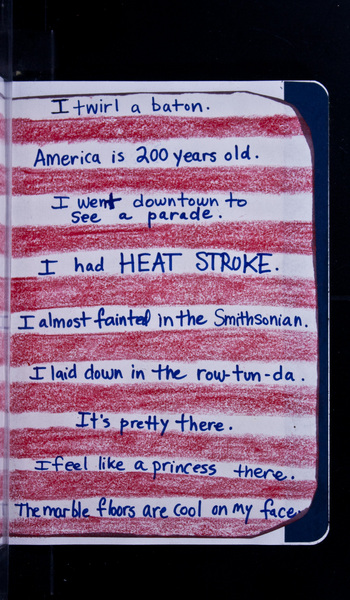 I twirl a baton.
America is 200 years old.
I went downtown to
see a parade.
I had HEAT STROKE.
I almost fainted in the Smithsonian.
I laid down in the row-tun-da.
It's pretty there.
I feel like a princess there.
The marble floors are cool on my face.